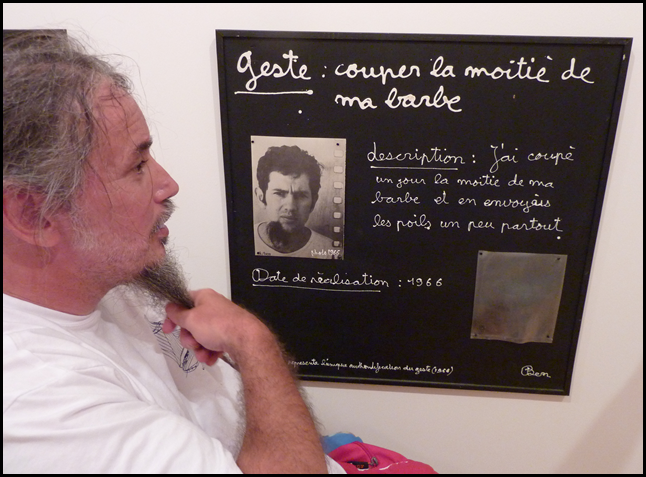 geste : couper la moitié de
ma barbe
description : J'ai coupé
un jour la moitié de ma
barbe et en envoyais
les poils un peu partout.
photo 1966
Date de réalisation : 1966
represente l'unique authentification du geste (1966)
Ben